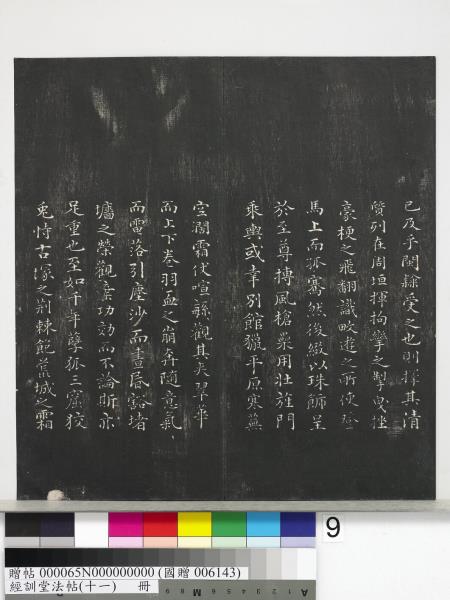 已及乎閑雜受之也則擇其清
質列在周垣揮拘攣之掣曳挫
豪梗之飛翻識畋遊之所使登
馬上而孤騫然後綴以珠飾呈
於至尊搏風槍櫐用壯旌門
乘輿或幸別館獵平原寒蕪
空濶霜仗喧繁觀其夫翠華
而上下卷羽血之崩奔隨意氣
而電落引塵沙而晝昏豁堵
墻之榮觀棄功効而不論斯亦
足重也至如千年孽狐三窟狡
兔恃古塚之荊棘飽荒城之霜
9
贈帖 000065N000000000 (國贈 006143)
經訓堂法帖(十一) 冊